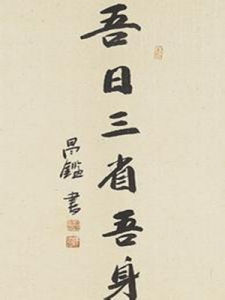 吾日三省吾身
昂鑑書